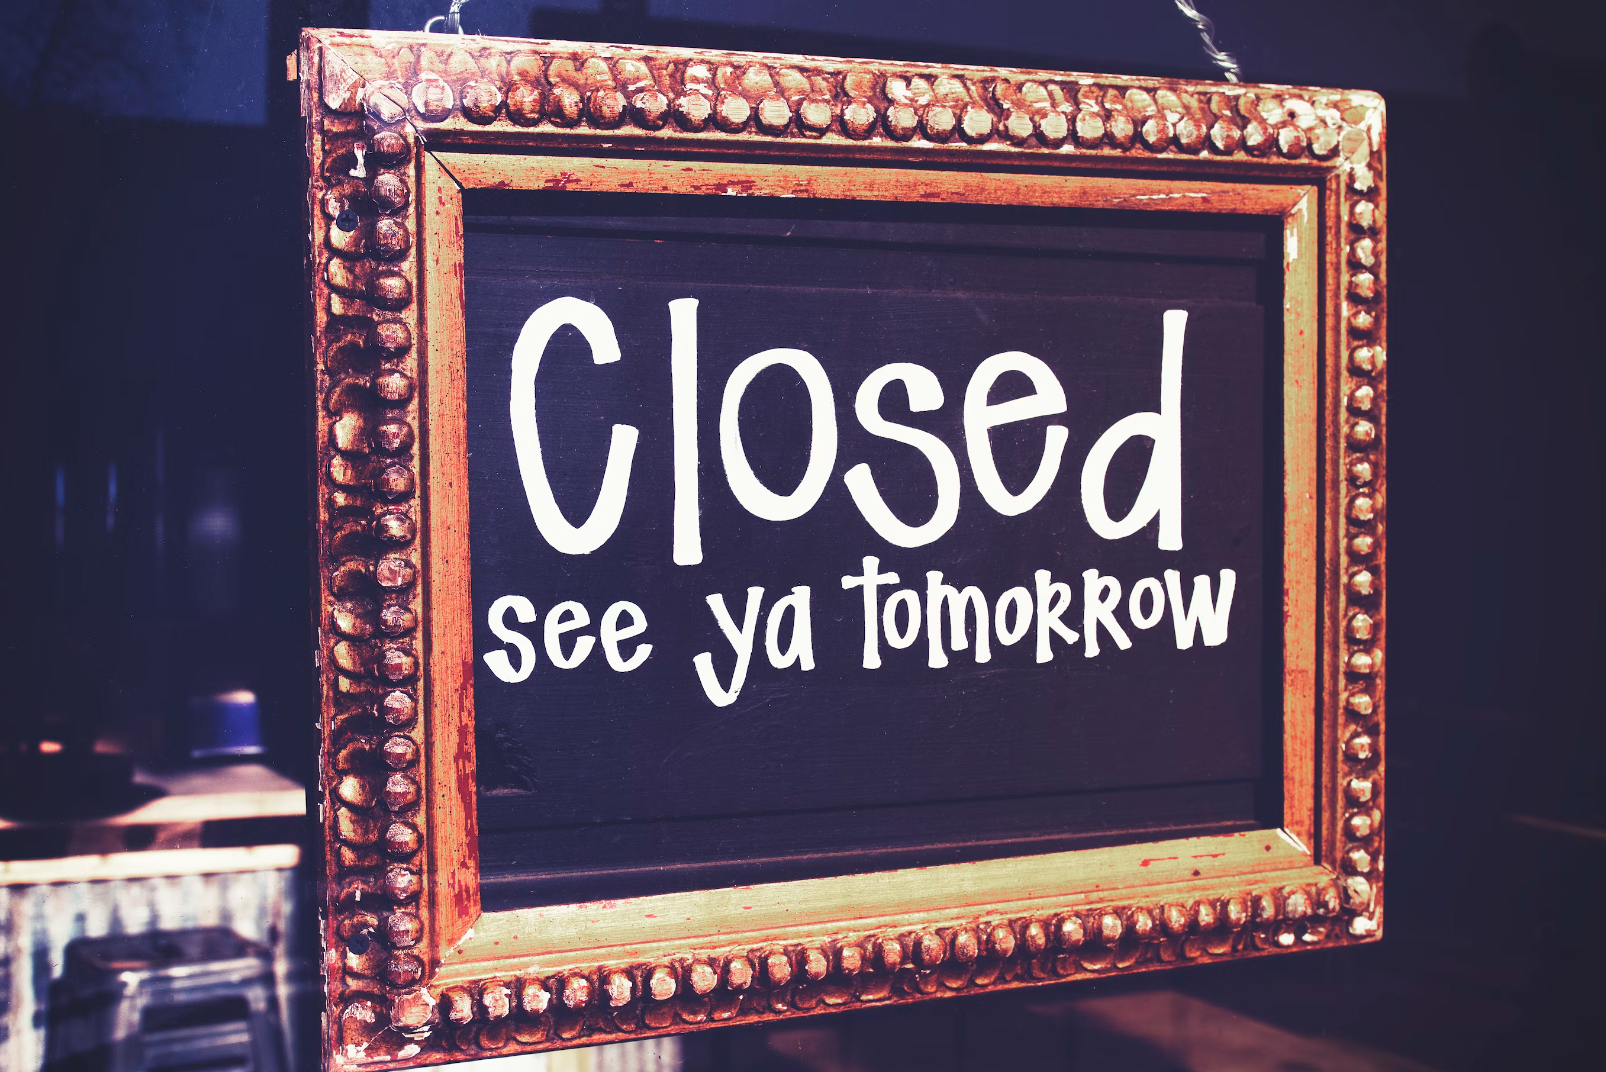 Closed
see ya tomorrow